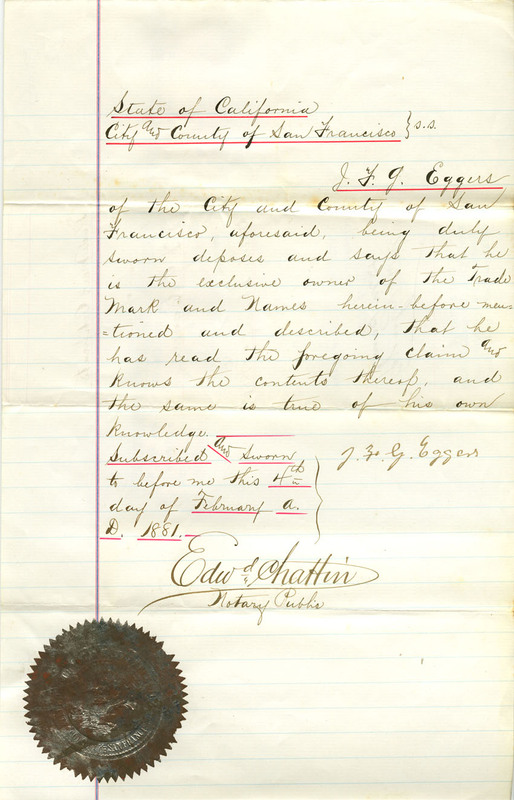 State of California
City and County of San Francisco } s.s.
J. F. G. Eggers
of the City and County of San
Francisco, aforesaid, being duly
sworn deposes and says that he
is the exclusive owner of the Trade
Mark and Names herein-before men-
=tioned and described, that he
has read the foregoing claim and
knows the contents thereof, and
the same is true of his own
knowledge.
Subscribed and Sworn
to before me this 4th
day of February A.
D. 1881.
J. F. G. Eggers
Edwd Chattin
Notary Public